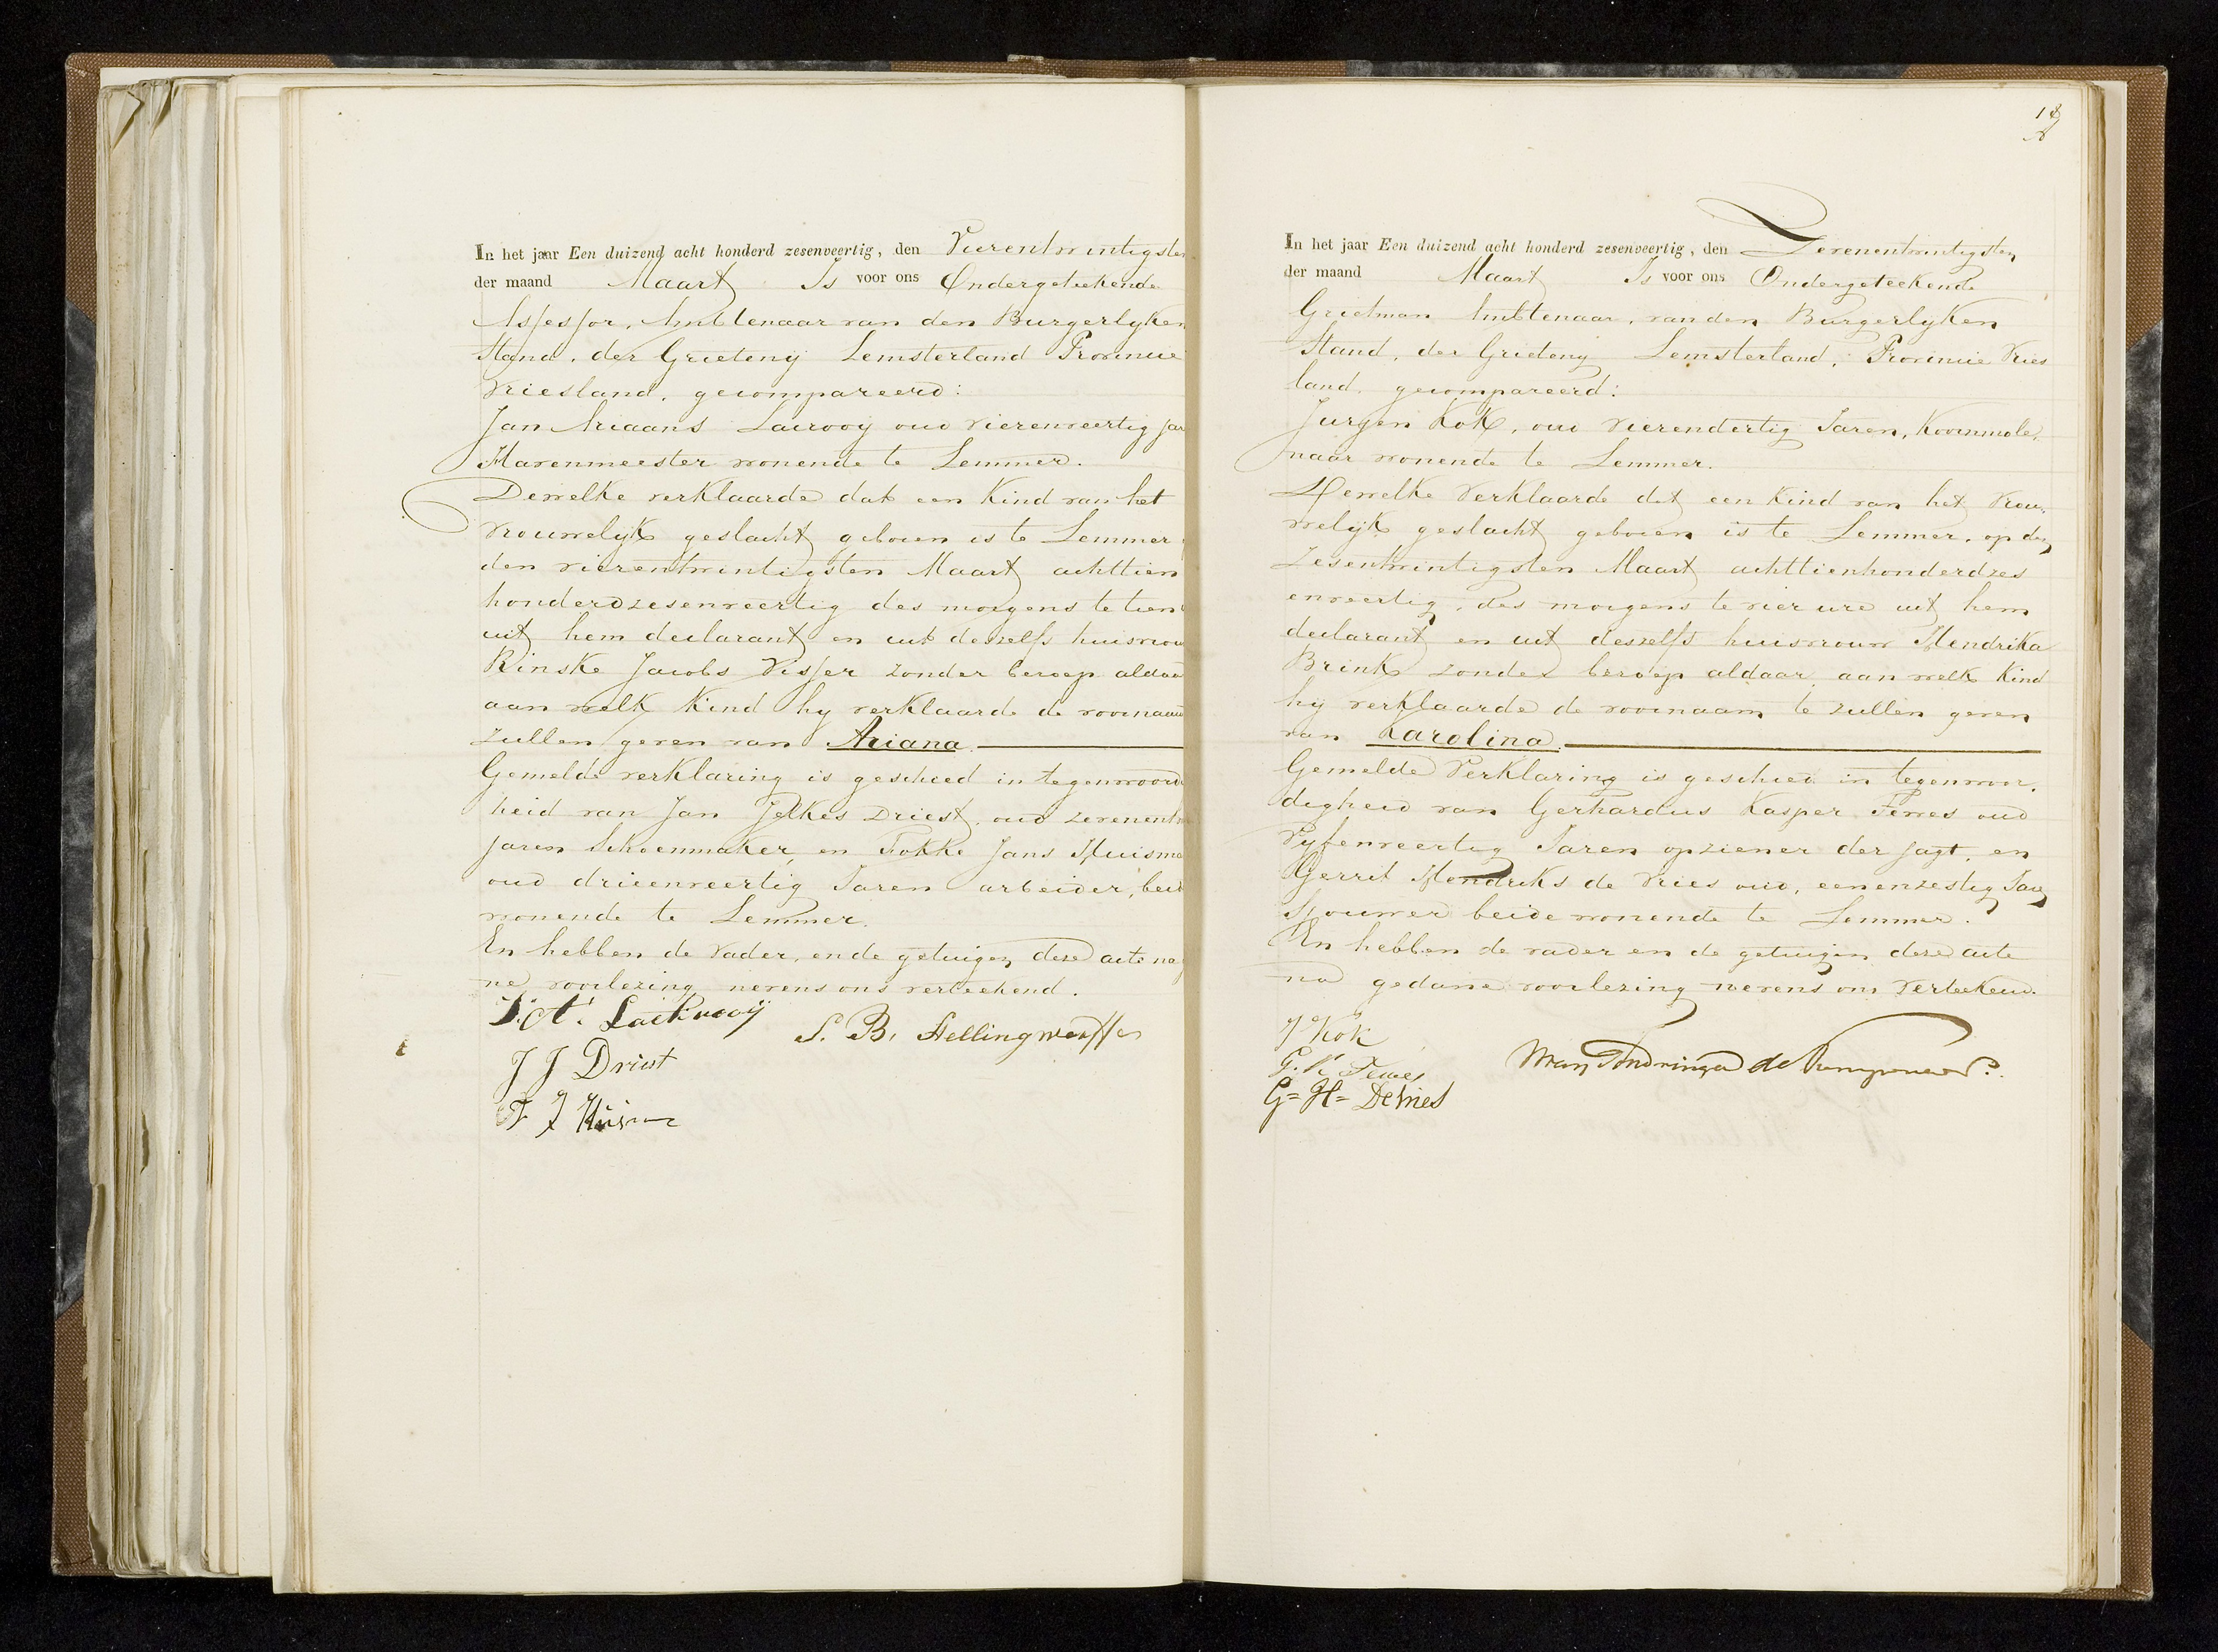 In het jaar Een duizend acht honderd zesenveertig, den Vierentwintigsten
der maand Maart Is voor ons Ondergeteekende
Assessor, Ambtenaar van den Burgerlyken
Stand, der Grieteny Lemsterland Provincie
Vriesland, gecompareerd:
Jan Ariaans Lairooy oud vierenveertig jar
Havenmeester wonende te Lemmer.
Dewelke verklaarde dat een Kind van het
Vrouwelyk geslacht geboren is te Lemmer
den vierentwintigsten Maart achttien
honderdzesenveertig des morgens te tien
uit hem declarant en uit deszelfs huisvrou
Rinske Jacobs Visser zonder beroep aldaar
aan welk Kind hy verklaarde de voornaam
zullen geven van Ariana.
Gemelde verklaring is geschied in tegenwoord
heid van Jan Jelkes Driest, oud zevenentw
jaren Schoenmaker, en Fokke Jans Huisma
oud drieenveertig Jaren arbeider, beid
wonende te Lemmer.
En hebben de Vader, en de getuigen deze acte na
ne voorlezing nevens ons verteekend.
J. A. Lairooij
S. B. Hellingwerff
J J Driest
F J Huisma
18
In het jaar Een duizend acht honderd zesenveertig, den Zevenentwintigsten
der maand Maart Is voor ons Ondergeteekende
Grietman Ambtenaar, van den Burgerlyken
Stand, der Grieteny Lemsterland, Provincie Vries
land gecompareerd:
Jurgen Kok, oud vierendertig Jaren, Koornmole,
naar wonende te Lemmer.
Dewelke Verklaarde dat een Kind van het Vrou,
welyk geslacht geboren is te Lemmer, op den
Zesentwintigsten Maart achttienhonderdzes
enveertig, des morgens te vier ure uit hem
declarant en uit deszelfs huisvrouw Hendrika
Brink zonder beroep aldaar, aan welk Kind
hij verklaarde de voornaam te zullen geven
van Karolina.
Gemelde Verklaring is geschied in tegenwoor,
digheid van Gerhardus Kasper Fewes oud
Vyfenveertig Jaren opziener der jagt, en
Gerrit Hendriks de Vries oud, eenenzestig Jaren
Sjouwer beide wonende te Lemmer.
En hebben de vader en de getuigen deze acte
na gedane voorlezing nevens ons Verteekend.
J Kok
G. K Fewes
G= H= DeVries